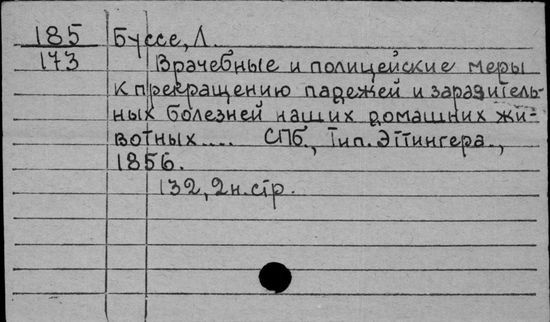 185 Буссе, Л.
173 Врачебные и полицейские меры
к прекращению падежей и заразитель-
ных болезней наших домашних жи-
вотных.... СПб., Тип. Эттингера.,
1856.
132, 2 н. стр.